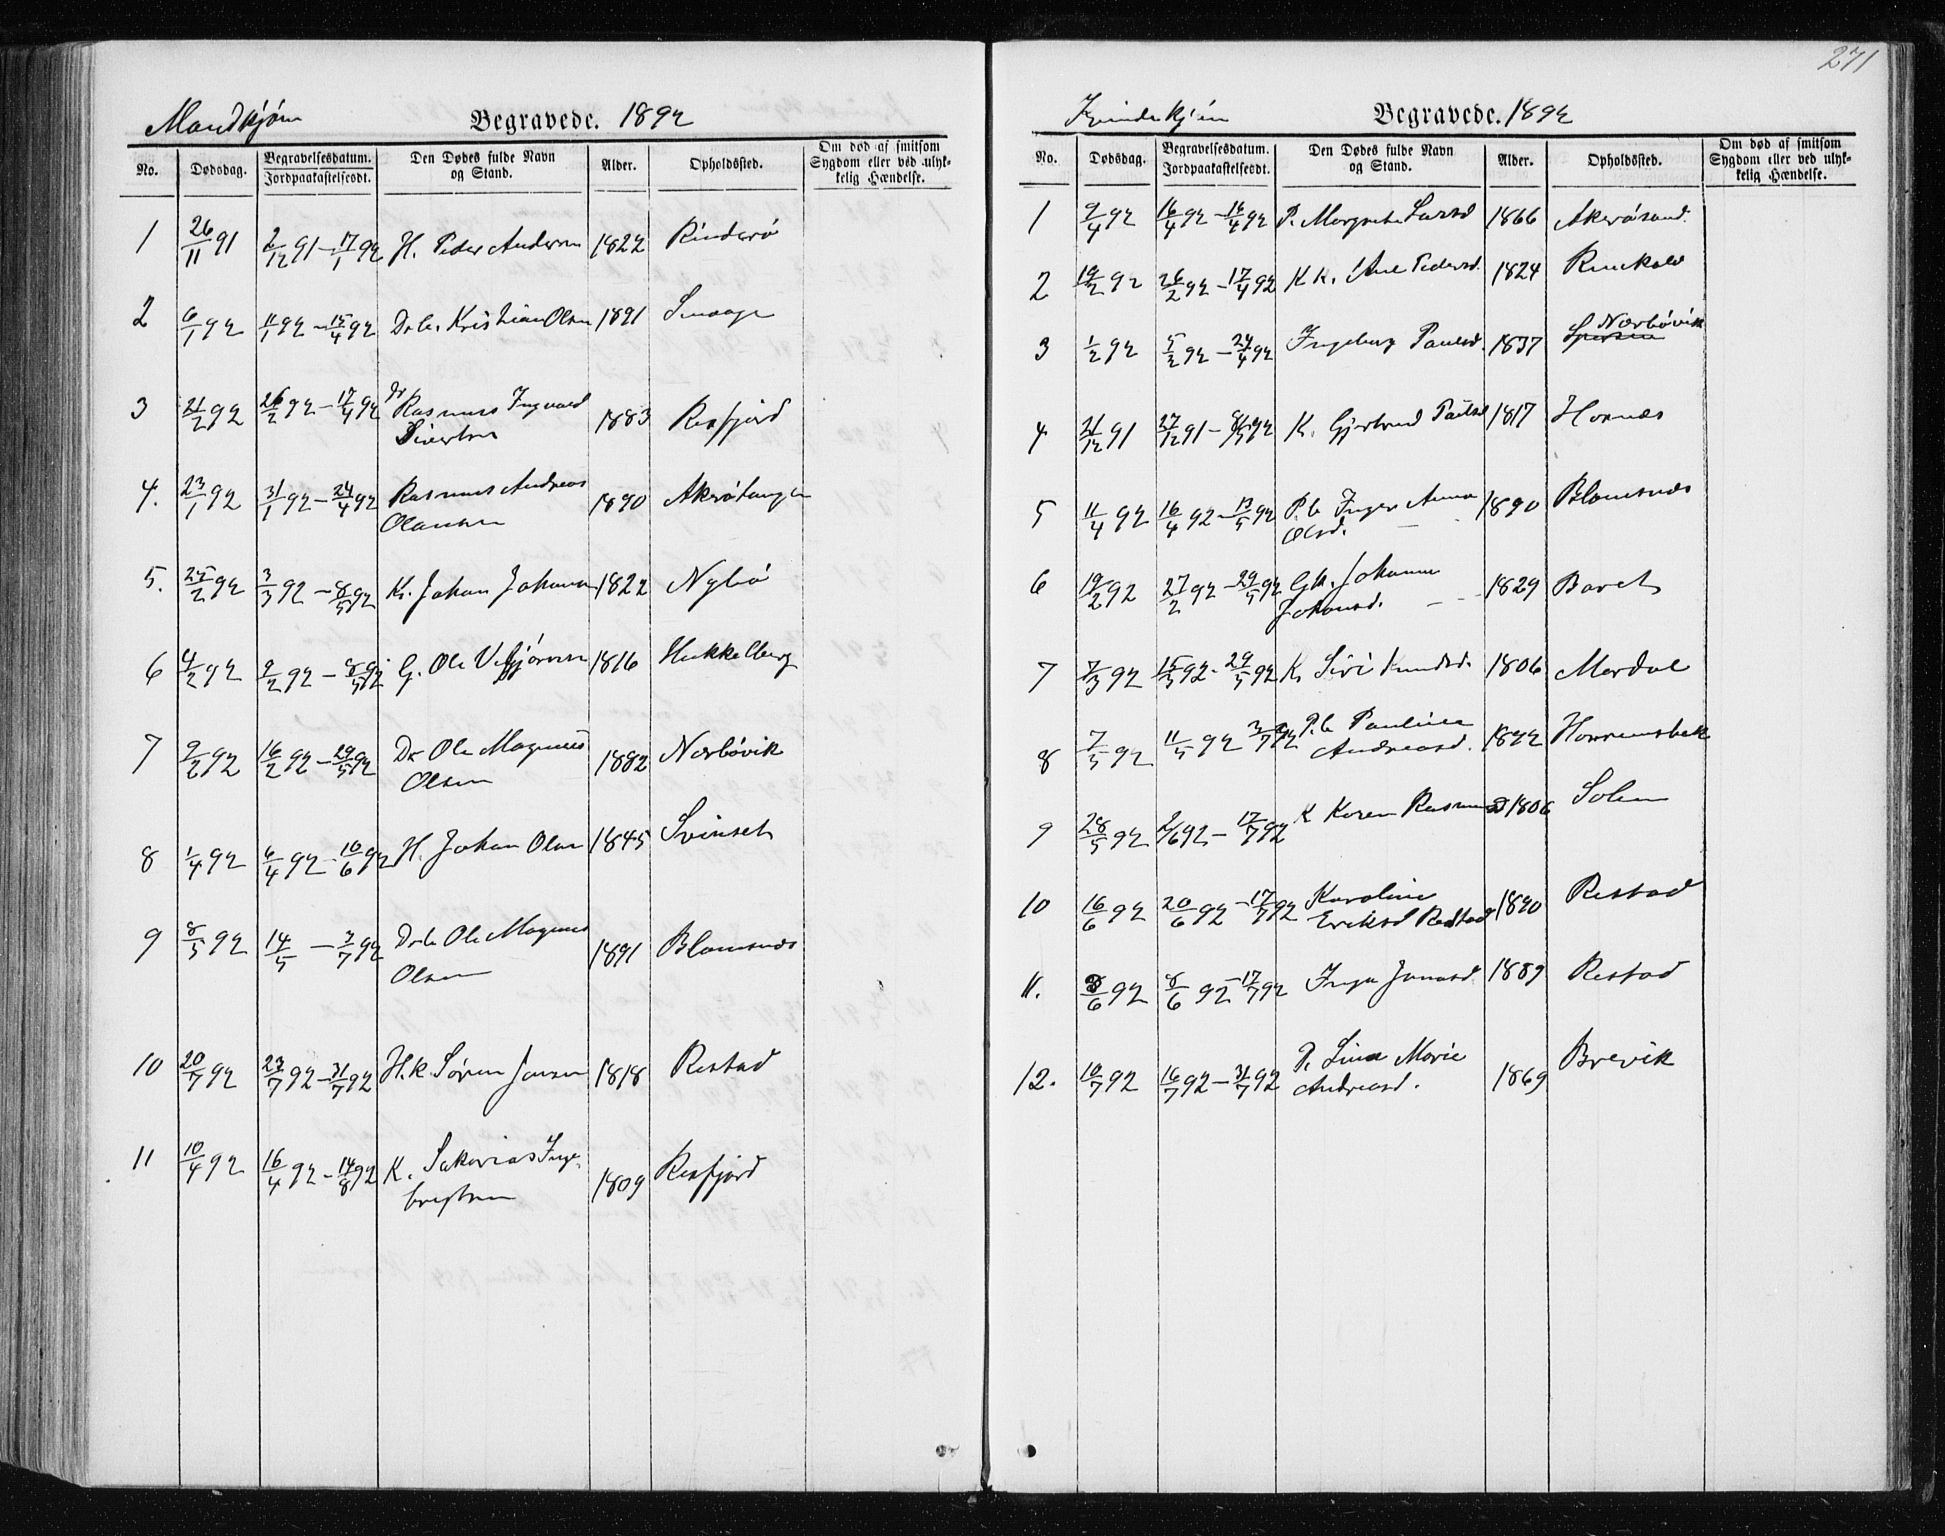 271
Mandkjøn Begravede. 1892
No. Dødsdag. Begravelsesdatum. Jordpaakastelsesdt. Den Dødes fulde Navn og Stand. Alder. Opholdssted. Om død af smitsom Sygdom eller ved ulykkelig Hændelse.
1 26/11 91 2/12 91 - 17/1 92 H. Peder Andersen 1822 Rinderø
2 6/1 92 11/1 92 - 15/4 92 Drb. Kristian Olsen 1891 Smaage
3 21/2 92 26/2 92 - 17/4 92 Dr Rasmus Ingvald
Sivertsen 1883 Rexfjord
4. 23/1 92 31/1 92 - 24/4 92 Rasmus Andreas
Olausen 1890 Akerøtangen
5. 25/2 92 3/3 92 - 8/5 92 K. Johan Johansen 1822 Nybø
6 4/2 92 9/2 92 - 8/5 92 G. Ole 1816 Hukkelberg
7 9/2 92 16/2 92 - 29/5 92 Dr Ole Magnus
Olsen 1882 Nerbøvik
8 1/4 92 6/4 92 - 10/6 92 H. Johan Olsen 1845 Svinset
9 8/5 92 14/5 - 3/7 92 Drb Ole Magnus
Olsen 1891 Blomsnes
10 20/7 92 23/7 92 - 31/7 92 H.k Søren Jensen 1818 Restad
11 10/4 92 16/4 92 - 14/8 92 K. Sakarias Inge-
brigtsen 1809 Rexfjord
Kvindekjøn Begravede. 1892
No. Dødsdag. Begravelsesdatum. Jordpaakastelsesdt. Den Dødes fulde Navn og Stand. Alder. Opholdssted. Om død af smitsom Sygdom eller ved ulykkelig Hændelse.
1 9/4 92 16/4 92 - 16/4 92 P. Margrete Larsd 1866 Akerøsund
2 19/2 92 26/2 92 - 17/4 92 K k. Ane Pedersd. 1824
3 1/2 92 5/2 92 - 24/4 92 Ingeborg Paulsd. 1837 Nerbøvik
4 21/12 91 27/12 91 - 8/5 92 K. Gjertrud Paulsd 1817 Hornes
5 11/4 92 16/4 92 - 13/5 92 P.b Inger Anna
Olsd. 1890 Blomsnes
6 19/2 92 27/2 92 - 29/5 92 Gk. Johanna
Johansd. 1829 Bavet
7 7/3 92 15/3 92 - 29/5 92 K Siri Knudsd. 1806 Mordal
8 7/5 92 11/5 92 3/7 92 P.b Pauline
Andreasd. 1892
9 28/5 92 2/6 92 - 17/7 92 K Karen Rasmusd 1806 Solem
10 16/6 92 20/6 92 - 17/7 92 Karoline
Eriksd Restad 1890 Restad
11. 3/6 92 8/6 92 - 17/7 92 Inga Jonasd 1889 Restad
12. 10/7 92 16/7 92 - 31/7 92 P. Lina Marie
Andreasd. 1869 Brevik